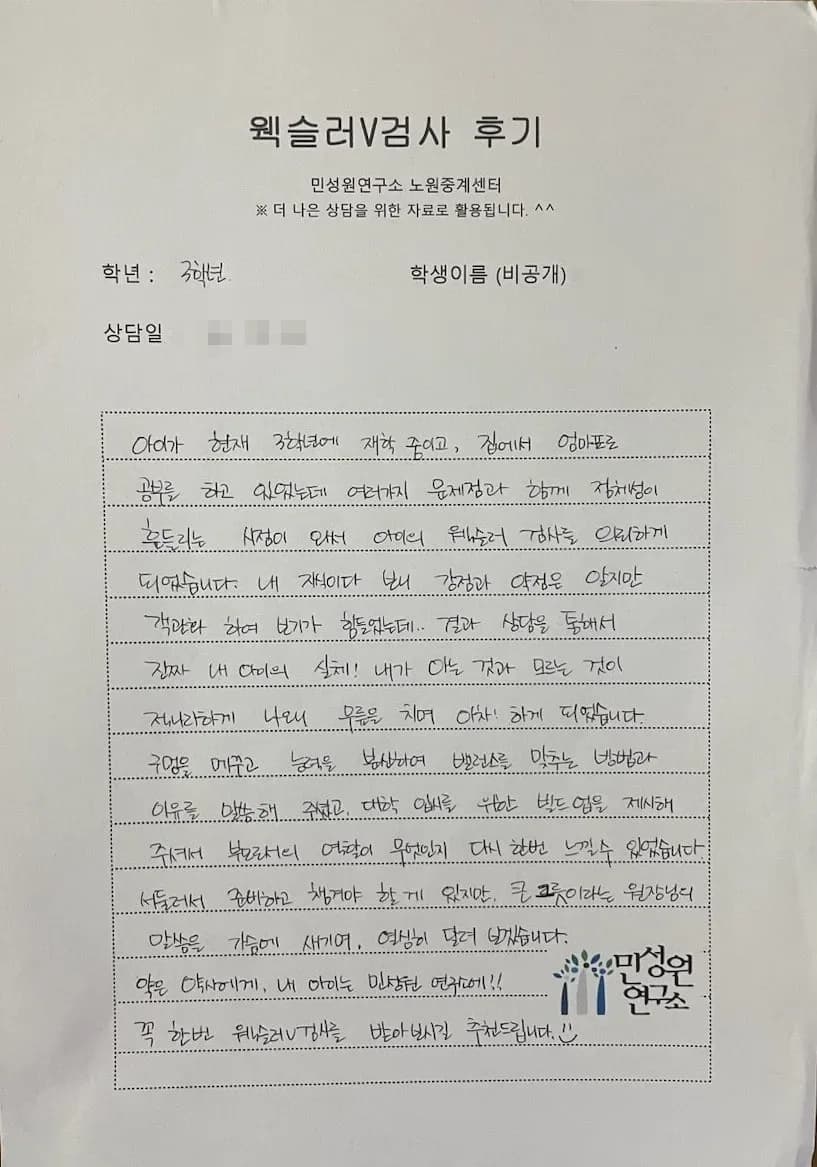 웩슬러V검사 후기
민성원연구소 노원중계센터
※ 더 나은 상담을 위한 자료로 활용됩니다. ^^
학년 : 3학년
학생이름 (비공개)
상담일
아이가 현재 3학년에 재학 중이고, 집에서 엄마표로
공부를 하고 있었는데 여러가지 문제점과 함께 정체성이
흔들리는 시점이 와서 아이의 웩슬러 검사를 의뢰하게
되었습니다. 내 자식이다 보니 강점과 약점은 알지만
객관화 하여 보기가 힘들었는데.. 결과 상담을 통해서
진짜 내 아이의 실체! 내가 아는 것과 모르는 것이
적나라하게 나오니 무릎을 치며 아차! 하게 되었습니다.
구멍을 메꾸고 능력을 분산하여 밸런스를 맞추는 방법과
이유를 말씀해 주셨고, 대학 입시를 위한 빌드업을 제시해
주셔서 부모로서의 역할이 무엇인지 다시 한번 느낄 수 있었습니다.
서둘러서 준비하고 챙겨야 할 게 있지만, 큰 그릇이라는 원장님의
말씀을 가슴에 새기며, 열심히 달려 보겠습니다.
약은 약사에게, 내 아이는 민성원 연구소에!!
꼭 한번 웩슬러V검사를 받아보시길 추천드립니다. :)
민성원
연구소